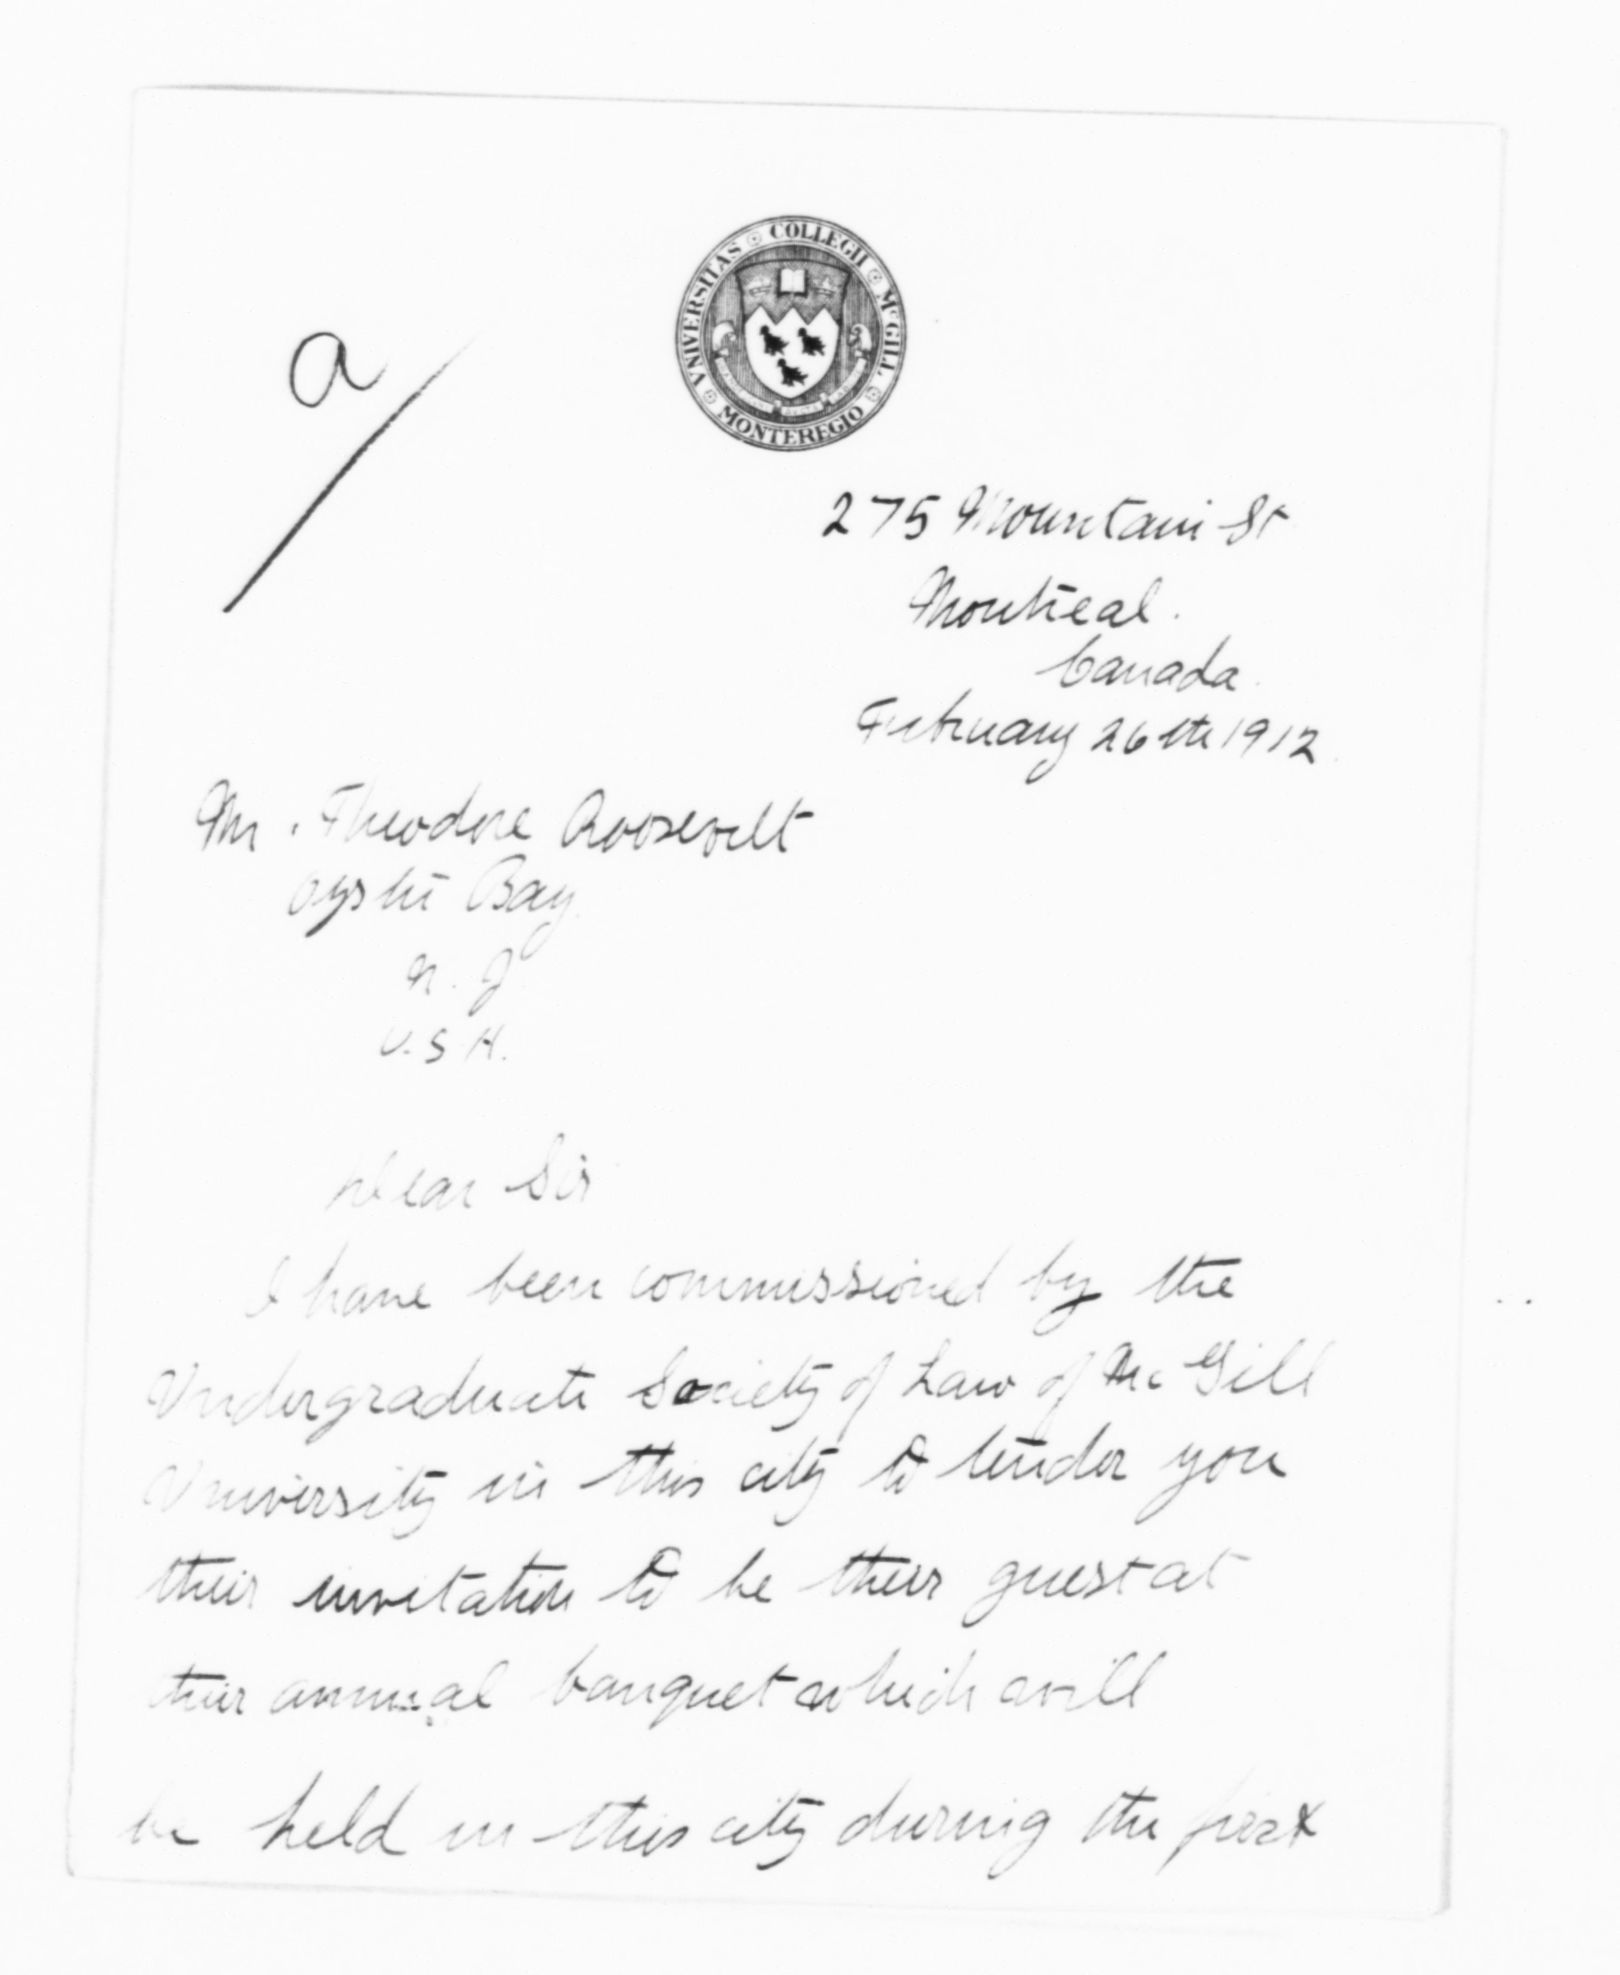 VNIVERSITAS COLLEGII McGILL MONTEREGIO
a
275 Mountain St
Montreal.
Canada.
February 26th 1912.
Mr. Theodore Roosevelt
Oyster Bay.
N. J.
U. S. A.
Dear Sir
I have been commissioned by the
Undergraduate Society of Law of McGill
University in this city to tender you
their invitation to be their guest at
their annual banquet which will
be held in this city during the first